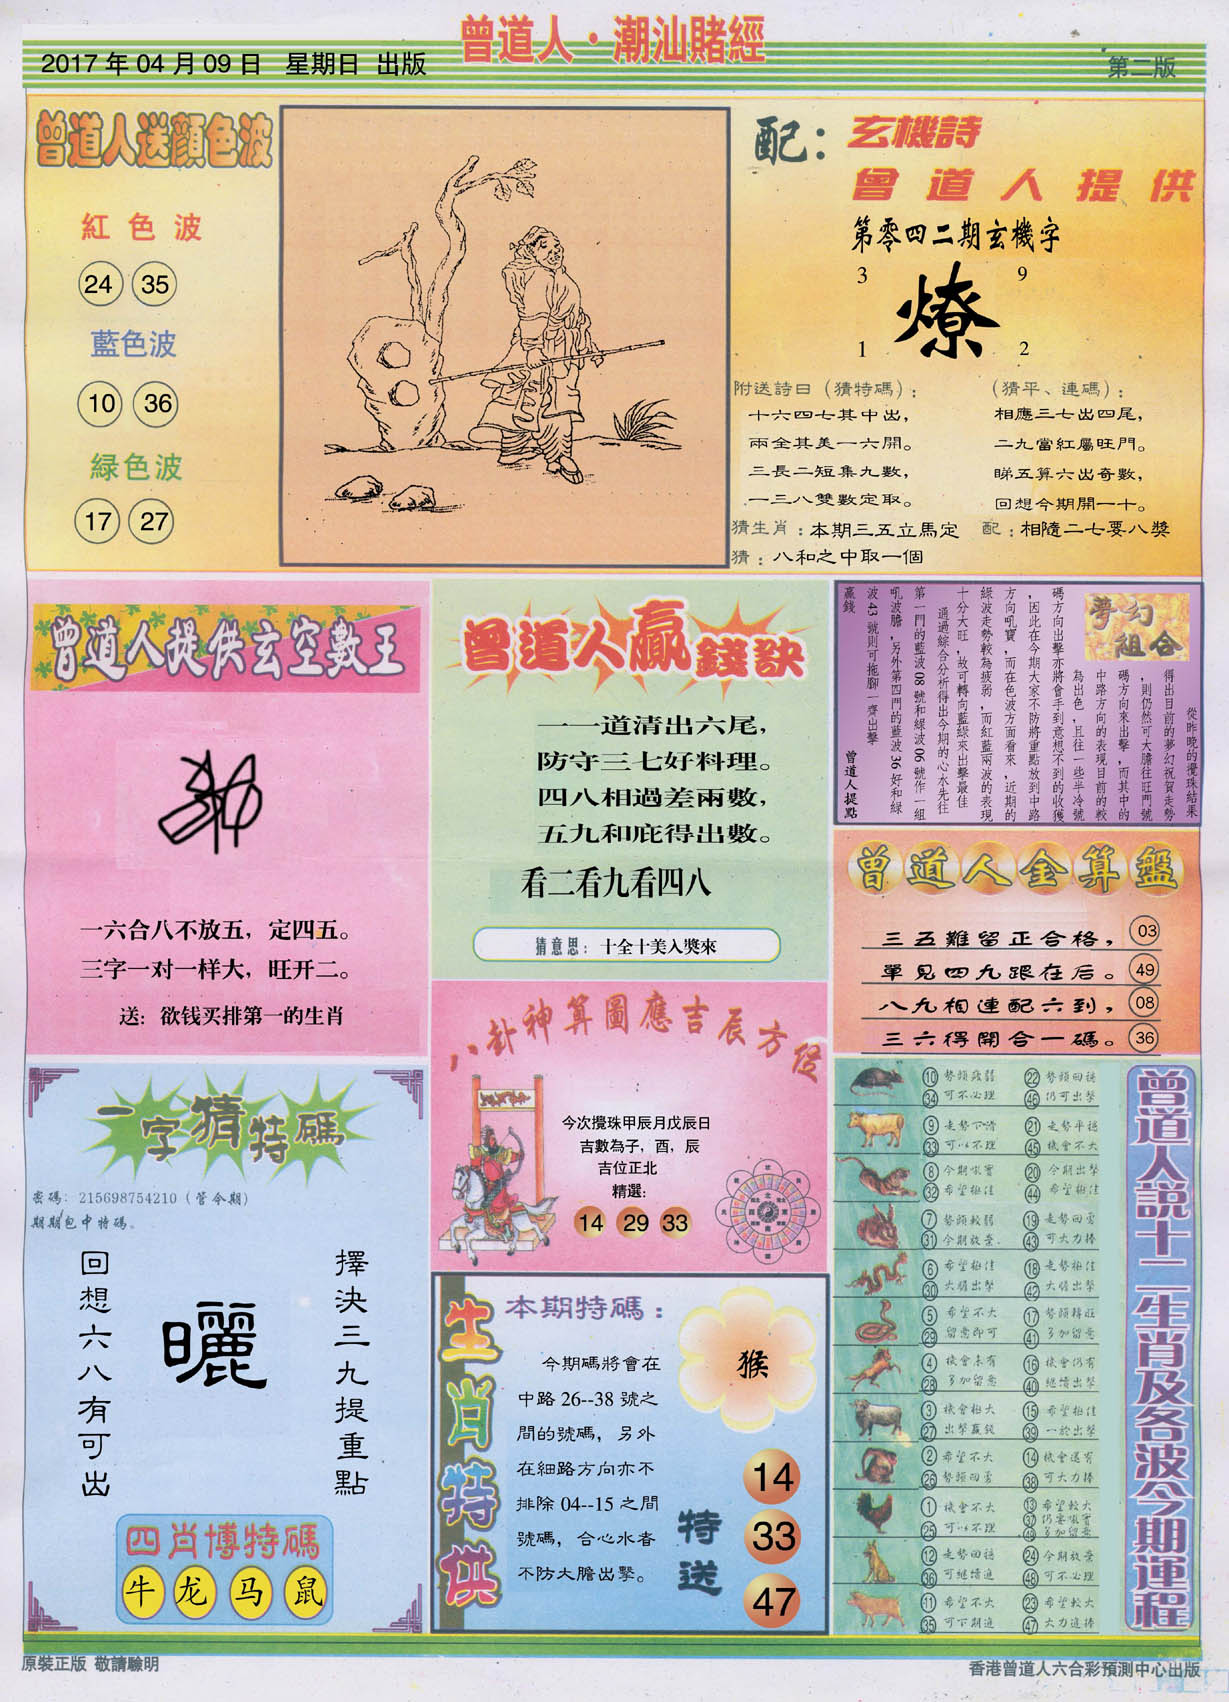 曾道人·潮汕賭經
2017年04月09日 星期日 出版
第二版
曾道人送顔色波
紅色波
24 35
藍色波
10 36
緑色波
17 27
配：玄機詩
曾道人提供
第零四二期玄機字
3 9
燎
1 2
附送詩曰（猜特碼）：
十六四七其中出，
兩全其美一六開。
三長二短集九數，
一三八雙數定取。
（猜平、連碼）：
相應三七出四尾，
二九當紅屬旺門。
睇五算六出奇數，
回想今期開一十。
猜生肖：本期三五立馬定
配：相隨二七要八獎
猜：八和之中取一個
曾道人提供玄空數王
一六合八不放五，定四五。
三字一对一样大，旺开二。
送：欲钱买排第一的生肖
曾道人贏錢訣
一一道清出六尾，
防守三七好料理。
四八相過差兩數，
五九和庇得出數。
看二看九看四八
猜意思：十全十美入獎來
夢幻組合
從昨晚的攪珠結果
得出目前的夢幻祝賀走勢
，則仍然可大膽往旺門號
碼方向來出擊，而其中的
中路方向的表現目前的較
為出色，且往一些半冷號
碼方向出擊亦將會手到意想不到的收獲
，因此在今期大家不防將重點放到中路
方向吼寶，而在色波方面看來，近期的
綠波走勢較為疲弱，而紅藍兩波的表現
十分大旺，故可轉向藍綠來出擊最佳
通過綜合分析得出今期的心水先往
第一門的藍波08號和綠波06號作一組
吼波膽，另外第四門的藍波36好和綠
波43號則可拖腳一齊出擊
贏錢
曾道人提點
曾道人金算盤
三五難留正合格，03
單見四九跟在后。49
八九相連配六到，08
三六得開合一碼。36
八卦神算圖應吉辰方位
今次攪珠甲辰月戊辰日
吉數為子，酉，辰
吉位正北
精選：
14 29 33
一字猜特碼
密碼：215698754210（管令期）
期期包中特碼。
擇決三九提重點
曬
回想六八有可出
四肖博特碼
牛 龙 马 鼠
生肖特供
本期特碼：
今期碼將會在
中路26--38號之
間的號碼，另外
在細路方向亦不
排除04--15之間
號碼，合心水者
不防大膽出擊。
猴
特送
14
33
47
曾道人說十二生肖及各波今期運程
10 34 勢頭疲弱 可不必理 22 46 勢頭回穩 仍可出擊
9 33 走勢下滑 可以不理 21 45 走勢平穩 機會不大
8 32 今期吼寶 希望極佳 20 44 今期出擊 希望極佳
7 31 勢頭較弱 今期放棄 19 43 走勢回勇 可大力捧
6 30 希望極佳 大膽出擊 18 42 走勢極佳 大膽出擊
5 29 希望不大 留意即可 17 41 勢頭轉旺 多加留意
4 28 機會未有 多加留意 16 40 機會仍有 繼續出擊
3 27 機會極大 出擊贏錢 15 39 希望極佳 一於出擊
2 26 希望不大 勢頭回勇 14 38 機會還有 可大力捧
1 25 機會不大 可以不理 13 37 49 希望較大 仍要吼寶 多加留意
12 36 走勢回穩 可繼續追 24 48 今期放棄 可不必理
11 35 希望不大 可下期追 23 47 希望較大 大力追捧
原裝正版 敬請驗明
香港曾道人六合彩預測中心出版